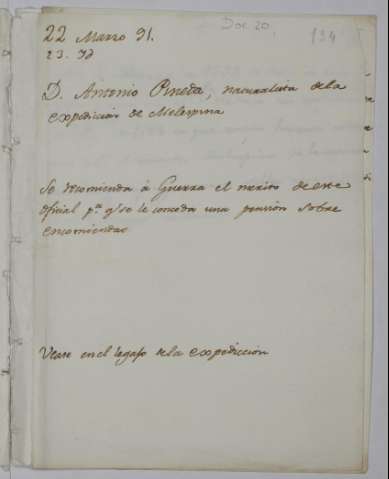 Doc 20,
194
22 Marzo 91.
23. Id
D. Antonio Pineda, naturalista de la
expedicion de Malespina
Se recomienda à Guerra el merito de este
Oficial pa. q/ se le conceda una pension sobre
encomiendas
Vease en el legajo de la expedicion